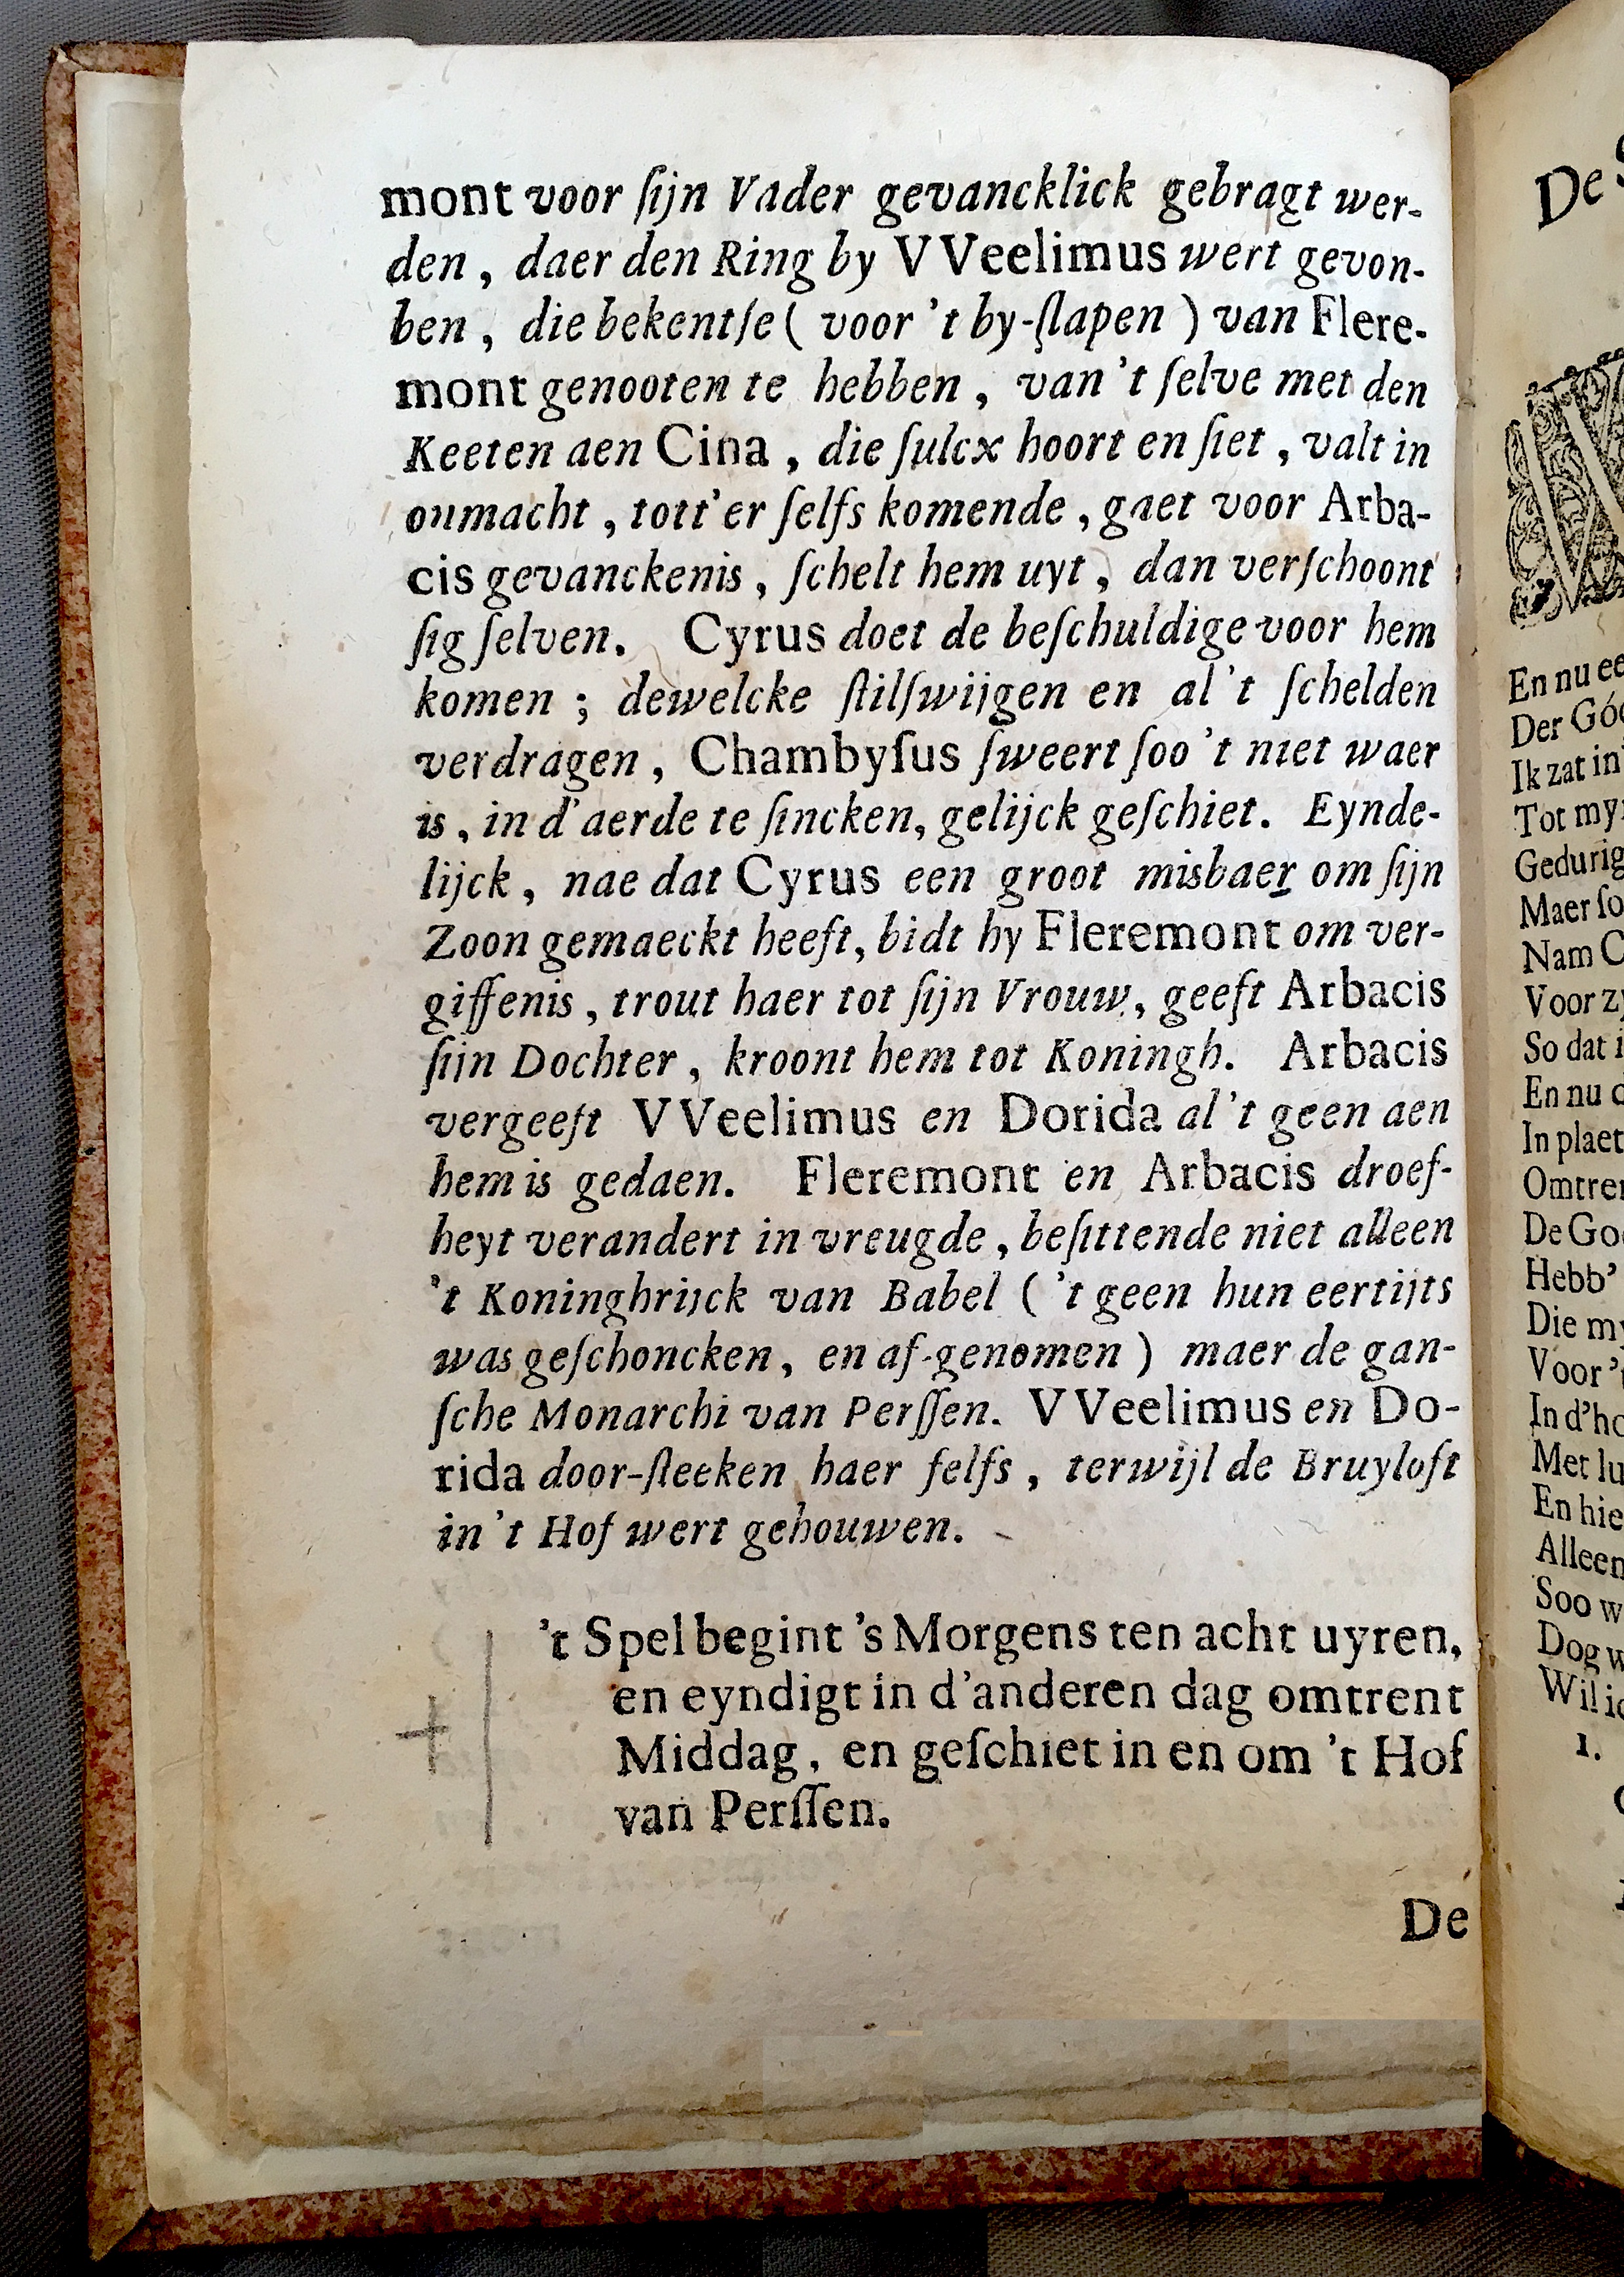 mont voor ſijn Vader gevancklick gebragt wer-
den, daer den Ring by VVeelimus wert gevon-
ben, die bekentſe ( voor 't by-ſlapen ) van Flere-
mont genooten te hebben, van 't ſelve met den
Keeten aen Cina, die ſulcx hoort en ſiet, valt in
onmacht, tott'er ſelfs komende, gaet voor Arba-
cis gevanckenis, ſchelt hem uyt, dan verſchoont
ſig ſelven. Cyrus doet de beſchuldige voor hem
komen; dewelcke ſtilſwijgen en al 't ſchelden
verdragen, Chambyſus ſweert ſoo 't niet waer
is, in d'aerde te ſincken, gelijck geſchiet. Eynde-
lijck, nae dat Cyrus een groot misbaer om ſijn
Zoon gemaeckt heeft, bidt hy Fleremont om ver-
giffenis, trout haer tot ſijn Vrouw, geeft Arbacis
ſijn Dochter, kroont hem tot Koningh. Arbacis
vergeeft VVeelimus en Dorida al 't geen aen
hem is gedaen. Fleremont en Arbacis droef-
heyt verandert in vreugde, beſittende niet alleen
't Koninghrijck van Babel ( 't geen hun eertijts
was geſchoncken, en af-genomen ) maer de gan-
ſche Monarchi van Perſſen. VVeelimus en Do-
rida door-ſteeken haer felfs, terwijl de Bruyloft
in 't Hof wert gehouwen.
't Spel begint 's Morgens ten acht uyren,
en eyndigt in d'anderen dag omtrent
Middag, en geſchiet in en om 't Hof
van Perſſen.
De
De
En nu
Der
Ik zat in
Tot
Gedurig
Maer
Nam
Voor
So dat
En nu
In
De
Hebb'
Die
Voor
In
Met
En
Alleen
Soo
Dog
Wil
1.